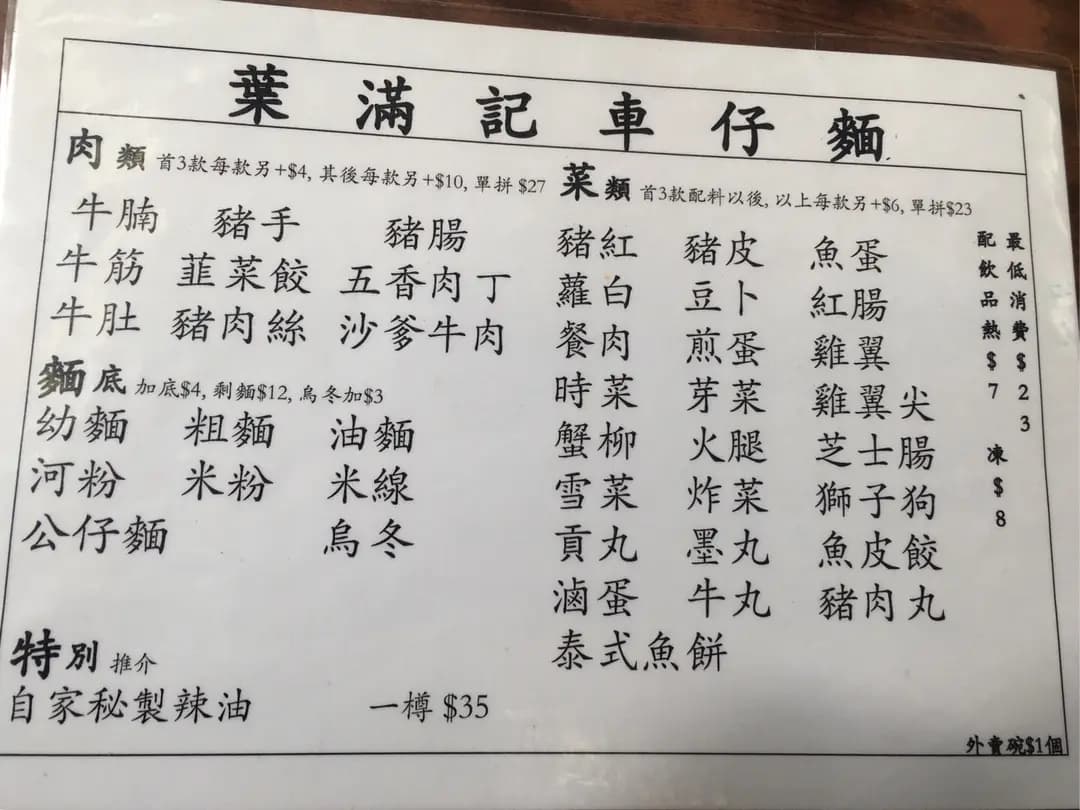 葉滿記車仔麵
肉類 首3款每款另+$4, 其後每款另+$10, 單拼 $27
牛腩 豬手 豬腸
牛筋 韮菜餃 五香肉丁
牛肚 豬肉絲 沙爹牛肉
麵底 加底$4, 剩麵$12, 烏冬加$3
幼麵 粗麵 油麵
河粉 米粉 米線
公仔麵 烏冬
特別 推介
自家秘製辣油 一樽 $35
菜類 首3款配料以後, 以上每款另+$6, 單拼$23
豬紅 豬皮 魚蛋
蘿白 豆卜 紅腸
餐肉 煎蛋 雞翼
時菜 芽菜 雞翼尖
蟹柳 火腿 芝士腸
雪菜 炸菜 獅子狗
貢丸 墨丸 魚皮餃
滷蛋 牛丸 豬肉丸
泰式魚餅
最低消費$23
配飲品熱$7 凍$8
外賣碗$1個